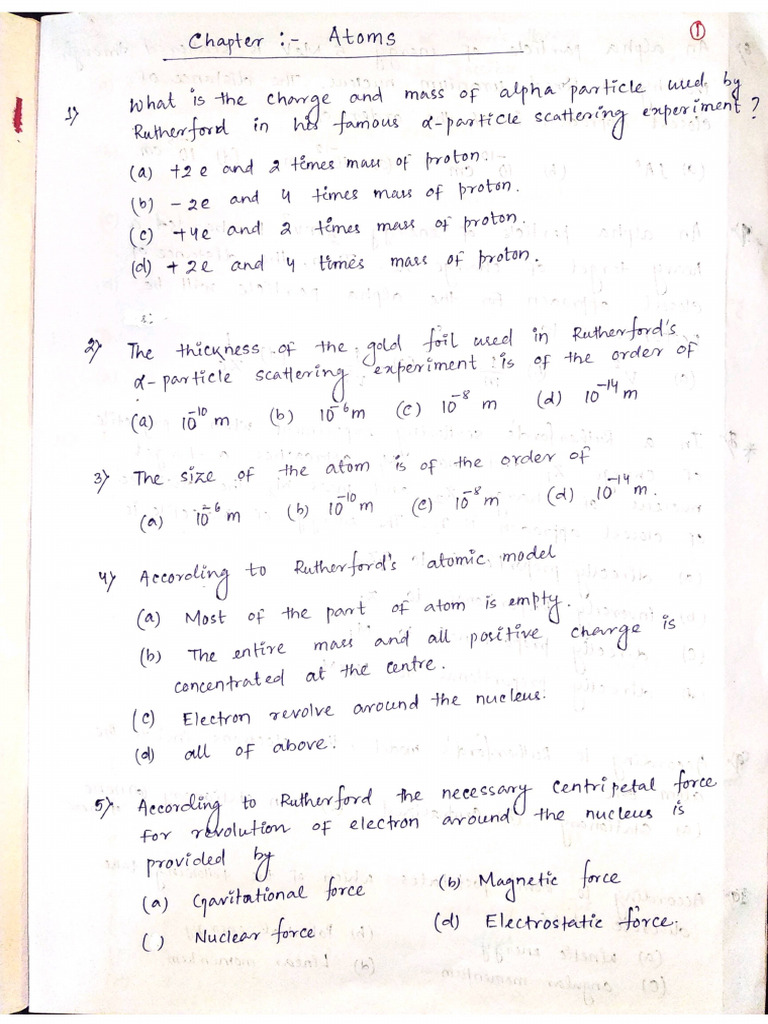 Chapter :- Atoms
①
1) What is the charge and mass of alpha particle used by
Rutherford in his famous α-particle scattering experiment?
(a) +2e and 2 times mass of proton.
(b) -2e and 4 times mass of proton.
(c) +4e and 2 times mass of proton.
(d) +2e and 4 times mass of proton.
2) The thickness of the gold foil used in Rutherford's
α-particle scattering experiment is of the order of
(a) 10⁻¹⁰ m (b) 10⁻⁶ m (c) 10⁻⁸ m (d) 10⁻¹⁴ m
3) The size of the atom is of the order of
(a) 10⁻⁶ m (b) 10⁻¹⁰ m (c) 10⁻⁸ m (d) 10⁻¹⁴ m.
4) According to Rutherford's atomic model
(a) Most of the part of atom is empty.
(b) The entire mass and all positive charge is
concentrated at the centre.
(c) Electron revolve around the nucleus.
(d) all of above.
5) According to Rutherford the necessary centripetal force
for revolution of electron around the nucleus is
provided by
(a) Gavitational force (b) Magnetic force
() Nuclear force (d) Electrostatic force.